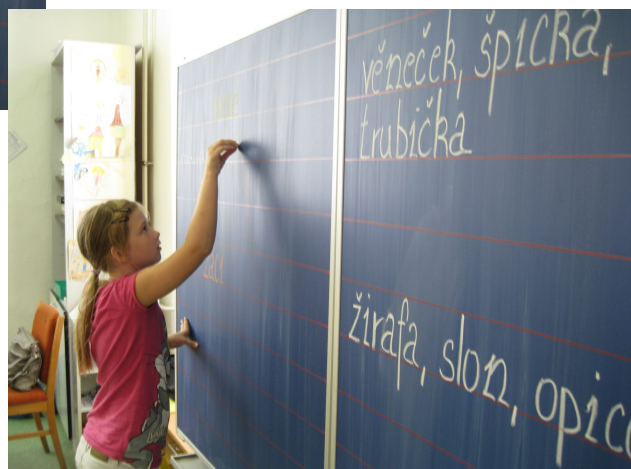 věneček, špička,
trubička
žirafa, slon, opice